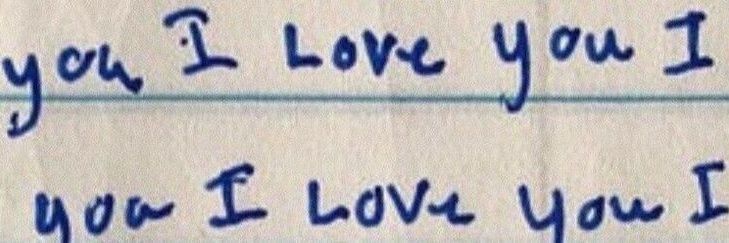 you I Love you I
you I Love you I